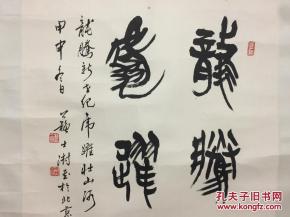 龍騰
虎躍
龍騰新世紀虎躍壮山河
甲申冬日
蘇士澍書於北京